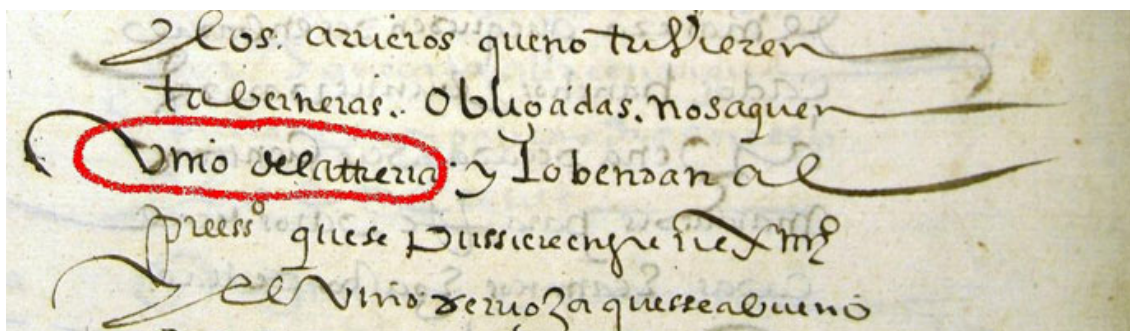 Y los. arrieros queno tubieren
taberneras. Obligadas. nosaquen
vino delatreria y lobendan al
preesso quese Pussiere
Y el vino deruoza quesseabueno